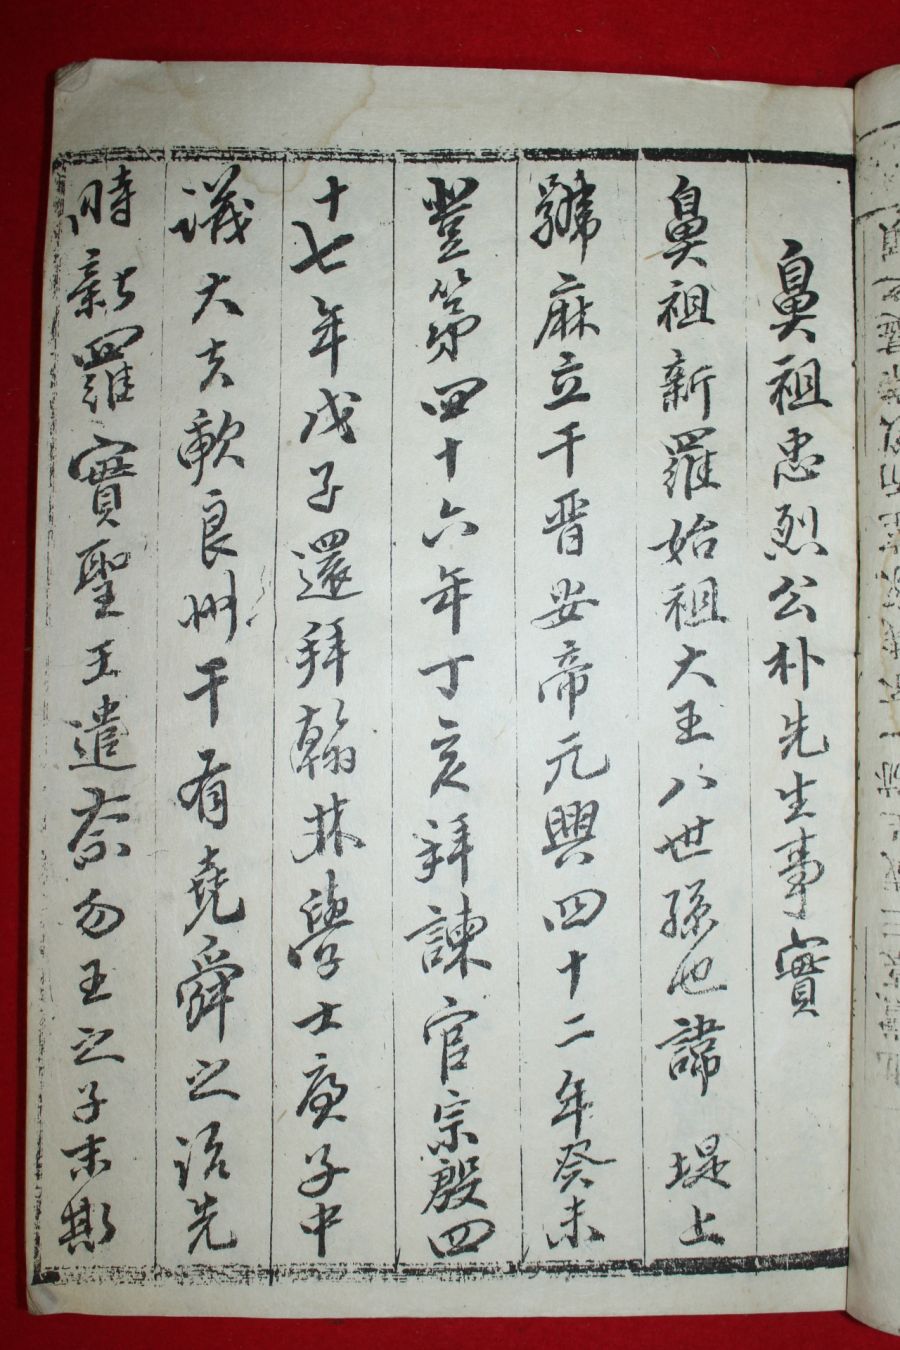 鼻祖忠烈公朴先生事實
鼻祖新羅始祖大王八世孫也諱 堤上
號麻立干晋安帝元興四十二年癸未
登第四十六年丁亥拜諫官宗殷四
十七年戊子還拜翰林學士庚子中
議大夫歃良州干有堯舜之治先
時新羅實聖王遣奈勿王之子未斯